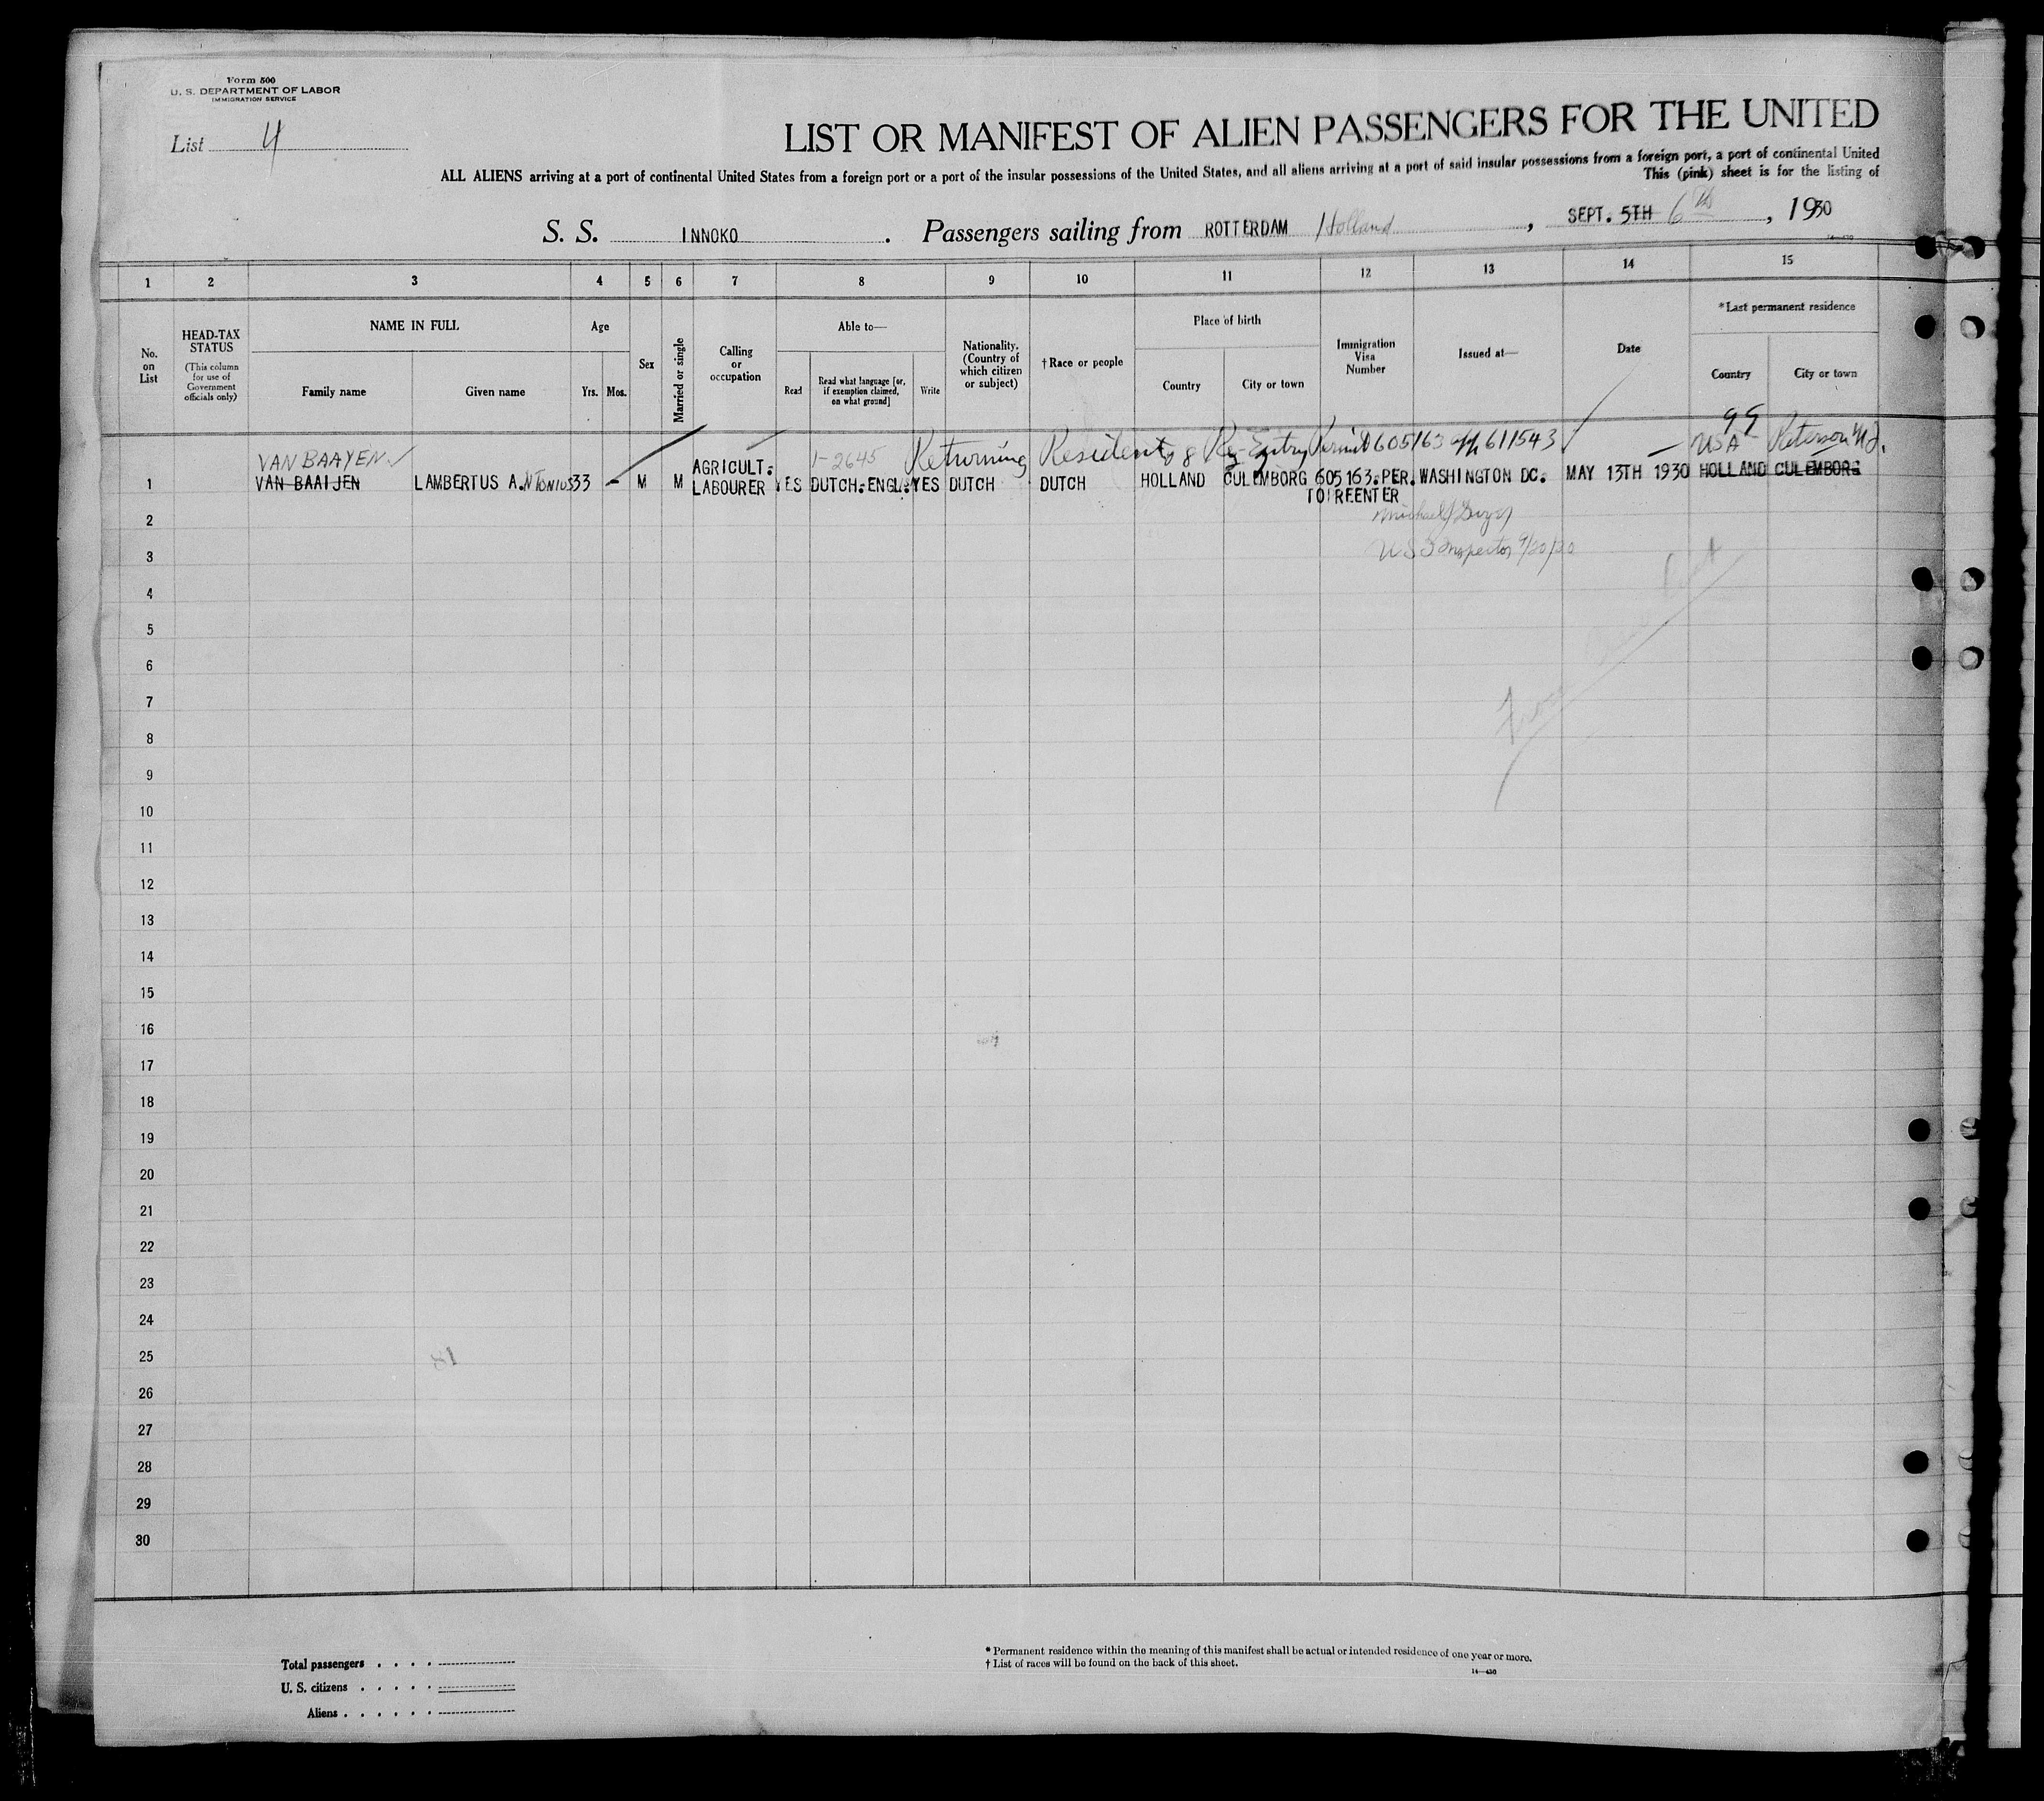 Form 500
U. S. DEPARTMENT OF LABOR
IMMIGRATION SERVICE
List 4
LIST OR MANIFEST OF ALIEN PASSENGERS FOR THE UNITED
ALL ALIENS arriving at a port of continental United States from a foreign port or a port of the insular possessions of the United States, and all aliens arriving at a port of said insular possessions from a foreign port, a port of continental United
This (pink) sheet is for the listing of
S. S. INNOKO. Passengers sailing from ROTTERDAM Holland, SEPT. 5TH 6th, 1930
14-430
1 2 3 4 5 6 7 8 9 10 11 12 13 14 15
No. on List
HEAD-TAX STATUS
(This column for use of Government officials only)
NAME IN FULL
Family name
Given name
Age
Yrs. Mos.
Sex
Married or single
Calling or occupation
Able to—
Read
Read what language [or, if exemption claimed, on what ground]
Write
Nationality. (Country of which citizen or subject)
†Race or people
Place of birth
Country
City or town
Immigration Visa Number
Issued at—
Date
*Last permanent residence
Country
City or town
99
VAN BAAYEN 1-2645 Returning Resident Re-Entry Permit 605163 611543 USA Paterson N.J.
1 VAN BAAIJEN LAMBERTUS A.NTONIUS 33 - M M AGRICULT. LABOURER YES DUTCH.ENGL. YES DUTCH DUTCH HOLLAND CULEMBORG 605163.PER. TO REENTER WASHINGTON DC. MAY 13TH 1930 HOLLAND CULEMBORG
2
US Inspector 9/20/30
3
4
5
6
7
8
9
10
11
12
13
14
15
16
17
18
19
20
21
22
23
24
25
26
27
28
29
30
Total passengers
U. S. citizens
Aliens
* Permanent residence within the meaning of this manifest shall be actual or intended residence of one year or more.
† List of races will be found on the back of this sheet.
14-430